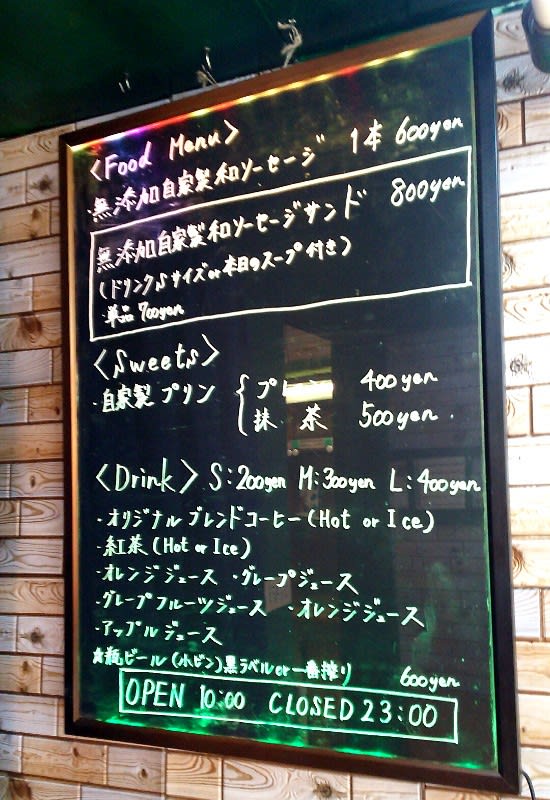 <Food Menu>
・無添加自家製和ソーセージ 1本 600yen
無添加自家製和ソーセージサンド 800yen
(ドリンクSサイズor本日のスープ付き)
・単品 700yen
<Sweets>
・自家製プリン { プレーン 400yen
抹茶 500yen
<Drink> S:200yen M:300yen L:400yen
・オリジナルブレンドコーヒー(Hot or Ice)
・紅茶(Hot or Ice)
・オレンジジュース ・グレープジュース
・グレープフルーツジュース ・オレンジジュース
・アップルジュース
☆瓶ビール(小ビン)黒ラベルor一番搾り 600yen
OPEN 10:00 CLOSED 23:00